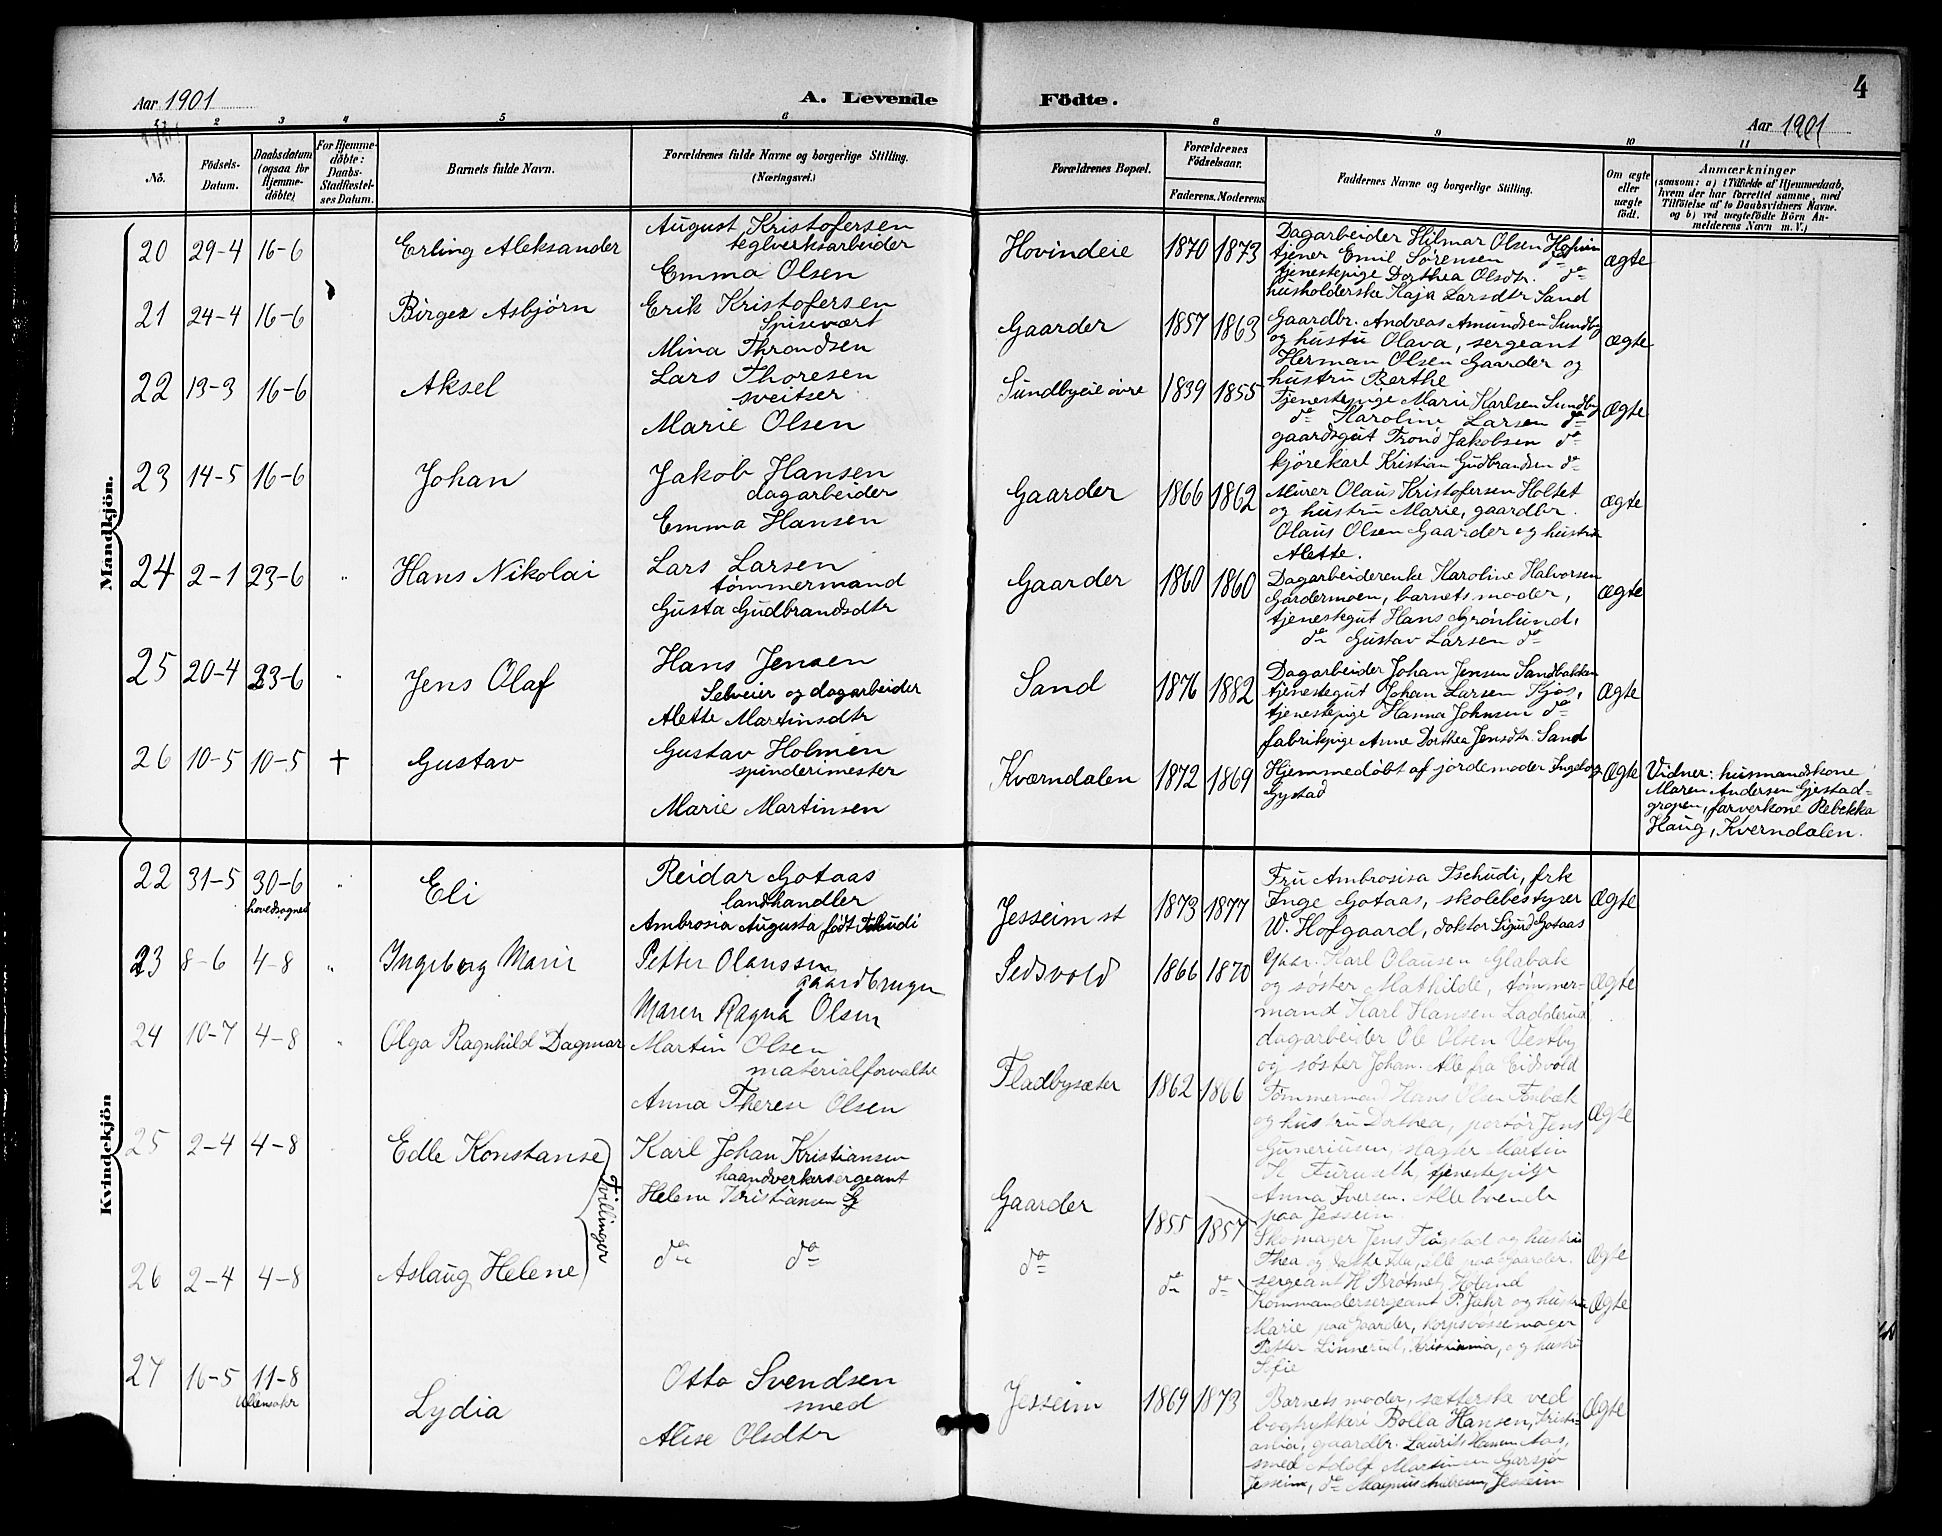 Aar 1901
A. Levende
Födte.
4
Aar 1901
2 3 4 5 6 8 9 10 11
No.
Födsels-Datum.
Daabsdatum (ogsaa for Hjemmedöbte)
For Hjemmedöbte: Daabs-Stadfæstelses Datum.
Barnets fulde Navn.
Forældrenes fulde Navne og borgerlige Stilling.
(Næringsvei.)
Forældrenes Bopæl.
Forældrenes Födselsaar.
Faderens. Moderens.
Faddernes Navne og borgerlige Stilling.
Om ægte eller uægte födt.
Anmærkninger
(saasom: a) i Tilfælde af Hjemmedaab, hvem der har forrettet samme, med Tilföielse af to Daabsvidners Navne. og b) ved uægtefödte Börn Anmelderens Navn m. V.)
Mandkjön.
20 29-4 16-6 Erling Aleksander
August Kristofersen
teglverksarbeider
Emma Olsen
Hovindeie 1870 1873
Dagarbeider Hilmar Olsen Hofvin
tjener Emil Sørensen do
tjenestepige Dorthea Olsdtr. do
husholderske Kaja Larsdtr Sand
Ægte
21 24-4 16-6 Birger Asbjörn
Erik Kristofersen
Spisevært
Mina Throndsen
Gaarder 1857 1863
Gaardbr. Andreas Amundsen Sundby
og hustru Olava, sergeant
Herman Olsen Gaarder og
hustru Berthe
Ægte
22 13-3 16-6 Aksel
Lars Thoresen
sveitser
Marie Olsen
Sundbyeie övre 1839 1855
Tjenestepige Marie Karlsen Sundby
do Karoline Larsen do
gaardsgut Trond Jakobsen do
kjörekarl Kristian Gudbrandsen do
Ægte
23 14-5 16-6 Johan
Jakob Hansen
dagarbeider
Emma Hansen
Gaarder 1866 1862
Murer Olaus Kristofersen Holtet
og hustru Marie, gaardbr.
Olaus Olsen Gaarder og hustru
Alette.
Ægte
24 2-1 23-6 " Hans Nikolai
Lars Larsen
tömmermand
Gusta Gudbrandsdtr
Gaarder 1860 1860
Dagarbeiderenke Karoline Halvorsen
Gardermoen, barnets moder,
tjenestegut Hans Grönlund,
do Gustav Larsen do
Ægte
25 20-4 23-6 " Jens Olaf
Hans Jensen
Selveier og dagarbeider
Alette Martinsdtr
Sand 1876 1882
Dagarbeider Johan Jensen Sandbakken
tjenestegut Johan Larsen Kjos,
tjenestepige Hanna Johnsen do
fabrikpige Anne Dorthea Jensdtr. Sand
Ægte
26 10-5 10-5 † Gustav
Gustav Holmen
spinderimester
Marie Martinsen
Kværndalen 1872 1869
Hjemmedöbt af jordemoder Ingeborg
Gystad
Ægte
Vidner: husmandskone
Maren Andersen Gjestad-
gropen, farverkone Rebekka
Haug, Kverndalen.
Kvindekjön
22 31-5 30-6 " Eli
hovedsognet
Reidar Gotaas
landhandler
Ambrosia Augusta födt Tschudi
Jesseim st 1873 1877
Fru Ambrosisa Tschudi, frk
Inge Gotaas, skolebestyrer
W. Hofgaard, doktor Sigurd Gotaas
Ægte
23 8-6 4-8 " Ingeborg Marie
Petter Olaussen
gaardbruger
Maren Ragna Olsen
1866 1870
Karl Olausen Glabak
og söster Mathilde, tömmer-
mand Karl Hansen Ladderud
dagarbeider Ole Olsen Vestby
og söster Johan. Alle fra Eidsvold
Ægte
24 10-7 4-8 " Olga Ragnhild Dagmar
Martin Olsen
materialforvalter
Anna Therese Olsen
Fladbysæter 1862 1866
Tömmermand Hans Olsen
og hustru Dorthea, portör Jens
Guneriusen, slagter Martin
H. Furuseth, tjenestepige
Anna Iversen. Alle boende
paa Jesseim.
Ægte
25 2-4 4-8 Edle Konstanse
Tvillinger
Karl Johan Kristiansen
haandverkersergeant
Helene Kristiansen
Gaarder 1855 1857
Skomager Jens Flogstad og hustru
Thea og datter Ida, alle paa Gaarder.
sergeant H. Brötmet, Höland
Ægte
26 2-4 4-8 Aslaug Helene
do do
do do do
Kommandersergeant P. Jahr og hustru
Marie paa Gaarder, korpsbössemager
Petter Linnerud, Kristiania, og hustru
Sofie
Ægte
27 16-5 11-8 Lydia
Ullensaker
Otto Svendsen
smed
Alise Olsdtr
Jesseim 1869 1873
Barnets moder, sætterske ved
bogtrykkeri Bolla Hansen, Kristi-
ania, gaardbr. Laurits Hansen Aas,
smed Adolf Martinsen Garsjö
Jesseim, do Magnus Andersen, Jesseim
Ægte